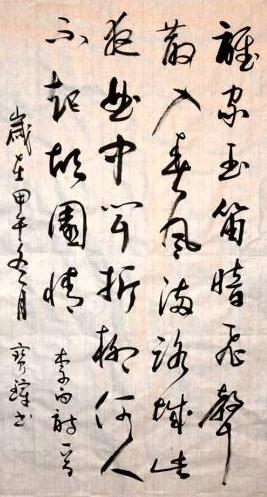 誰家玉笛暗飛聲
散入春風滿洛城此
夜曲中聞折柳何人
不起故園情 李白詩一首
歲在甲午冬月 寶書